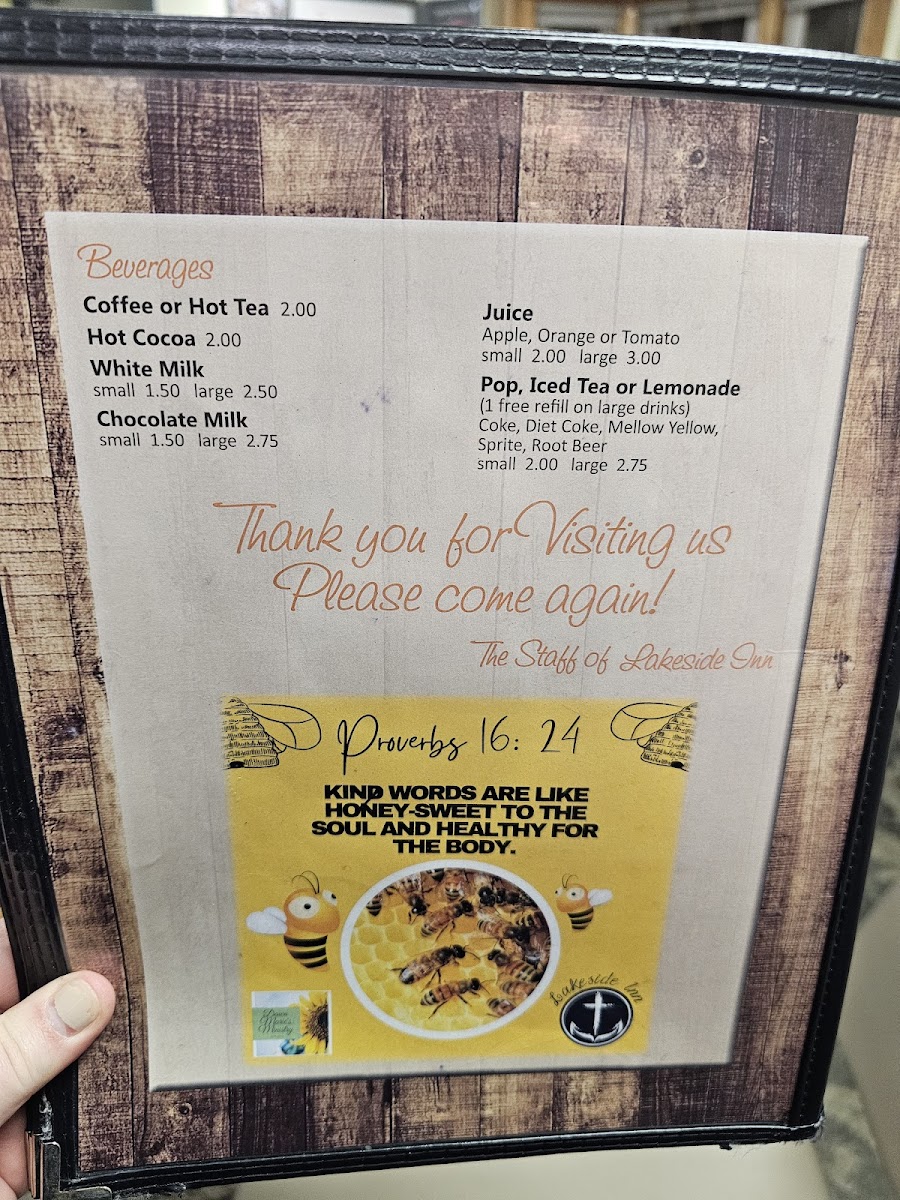 Beverages
Coffee or Hot Tea 2.00
Hot Cocoa 2.00
White Milk
small 1.50 large 2.50
Chocolate Milk
small 1.50 large 2.75
Juice
Apple, Orange or Tomato
small 2.00 large 3.00
Pop, Iced Tea or Lemonade
(1 free refill on large drinks)
Coke, Diet Coke, Mellow Yellow,
Sprite, Root Beer
small 2.00 large 2.75
Thank you for Visiting us
Please come again!
The Staff of Lakeside Inn
Proverbs 16: 24
KIND WORDS ARE LIKE
HONEY-SWEET TO THE
SOUL AND HEALTHY FOR
THE BODY.
Dawn
Marie's
Ministry
Lakeside Inn